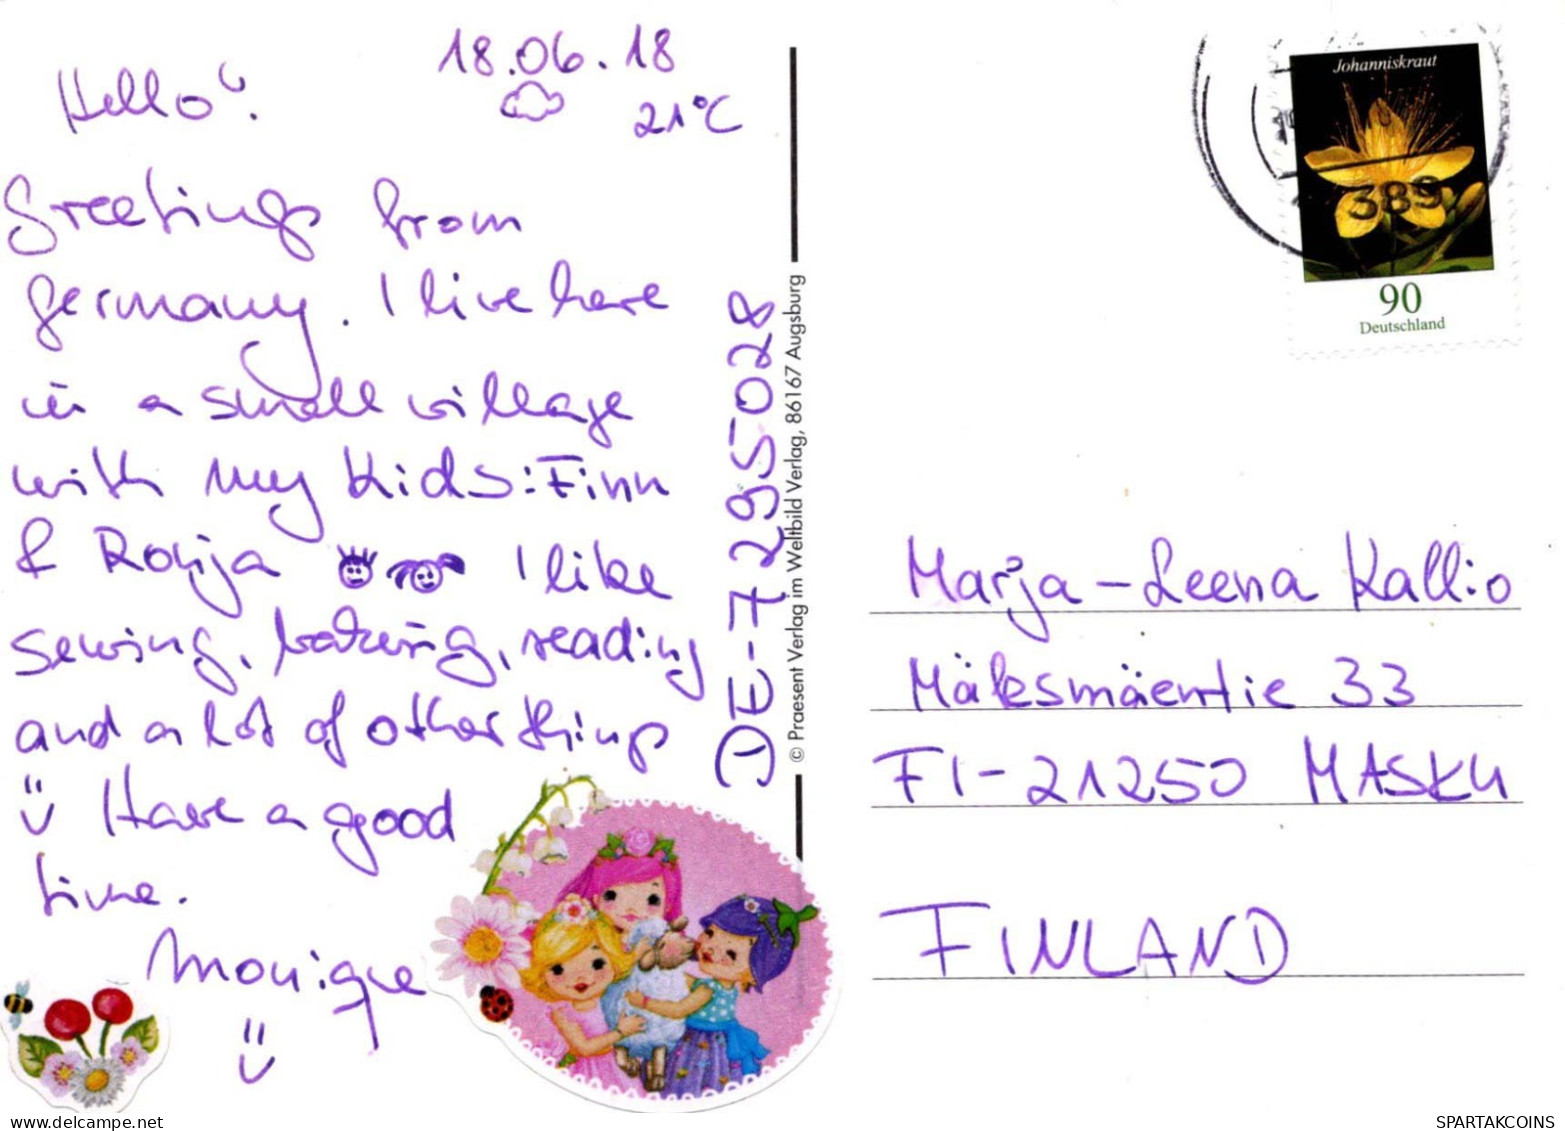 18.06.18
Hello!
21°C
Greetings from
Germany. I live here
in a small village
with my kids: Finn
& Ronja I like
sewing, baking, reading
and a lot of other things
Have a good
time.
Monique
DE-7295028
© Praesent Verlag im Weltbild Verlag, 86167 Augsburg
Johanniskraut
389
90
Deutschland
Marja-Leena Kallio
Mäksmäentie 33
FI-21250 MASKU
FINLAND
SPARTAKCOINS